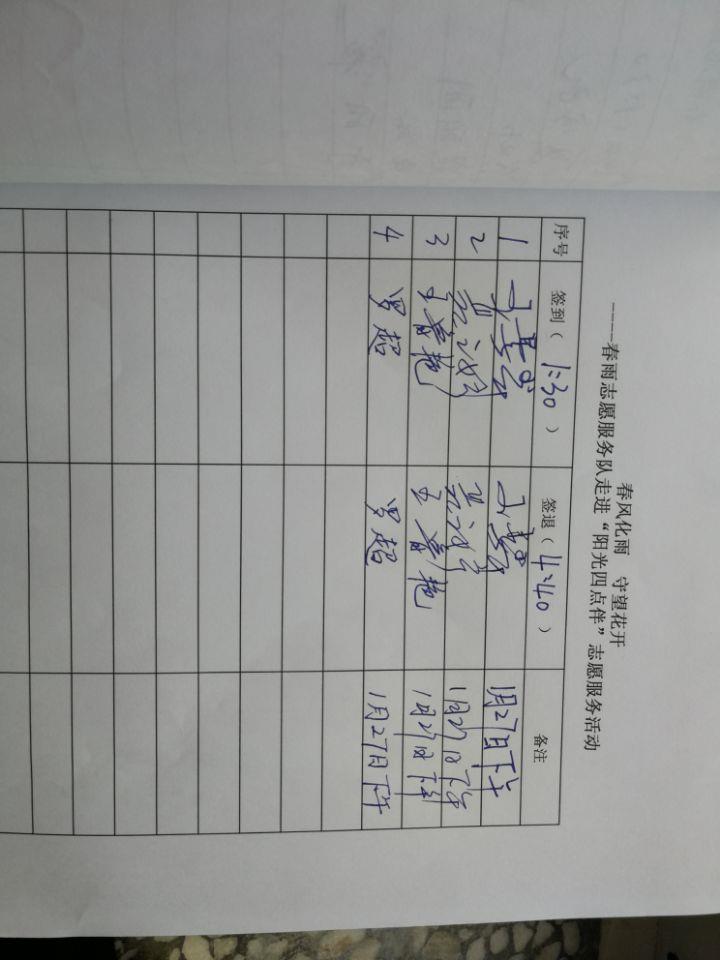 春风化雨 守望花开
----春雨志愿服务队走进“阳光四点伴”志愿服务活动
序号 签到（1:30） 签退（4:40） 备注
1 1月27日下午
2 1月27日下午
3 王春艳 王春艳 1月27日下午
4 罗超 罗超 1月27日下午